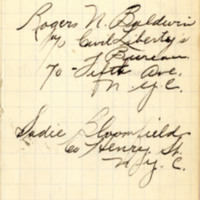 Rogers N. Baldwin
c/o Civil Liberty's
Bureau
70 - Fifth Ave.
N. Y. C.
Sadie Bloomfield
Co Henry St.
N. Y. C.